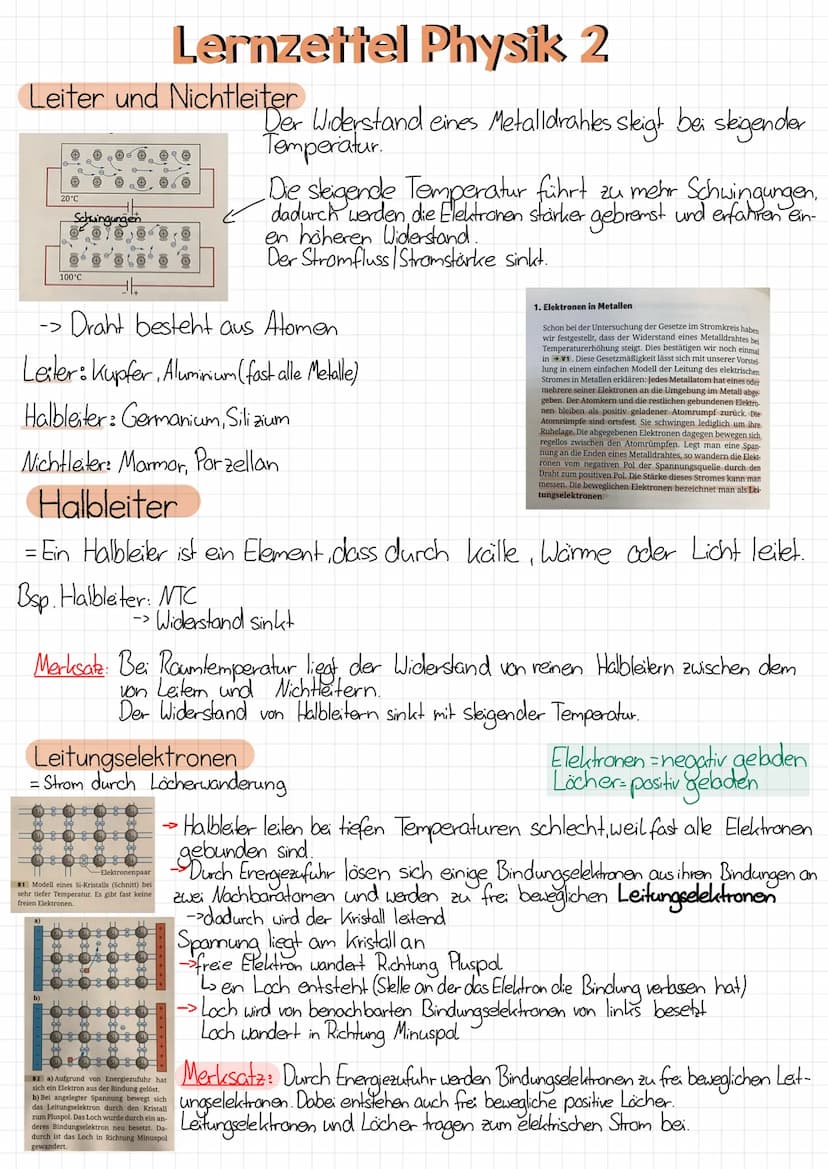 Lernzettel Physik 2
Leiter und Nichtleiter
Der Widerstand eines Metalldrahtes steigt bei steigender
Temperatur.
20°C
Schwingungen
100°C
Die steigende Temperatur führt zu mehr Schwingungen,
dadurch werden die Elektronen stärker gebremst und erfahren ein-
en höheren Widerstand.
Der Stromfluss/Stromstärke sinkt.
-> Draht besteht aus Atomen
Leiter: Kupfer, Aluminium (fast alle Metalle)
Halbleiter: Germanium, Silizium
Nichtleiter: Marmor, Porzellan
1. Elektronen in Metallen
Schon bei der Untersuchung der Gesetze im Stromkreis haben
wir festgestellt, dass der Widerstand eines Metalldrahtes bei
Temperaturerhöhung steigt. Dies bestätigen wir noch einmal
in → V1. Diese Gesetzmäßigkeit lässt sich mit unserer Vorstel-
lung in einem einfachen Modell der Leitung des elektrischen
Stromes in Metallen erklären: Jedes Metallatom hat eines oder
mehrere seiner Elektronen an die Umgebung im Metall abge-
geben. Der Atomkern und die restlichen gebundenen Elektro-
nen bleiben als positiv geladener Atomrumpf zurück. Die
Atomrümpfe sind ortsfest. Sie schwingen lediglich um ihre
Ruhelage. Die abgegebenen Elektronen dagegen bewegen sich
regellos zwischen den Atomrümpfen. Legt man eine Span-
nung an die Enden eines Metalldrahtes, so wandern die Elekt-
ronen vom negativen Pol der Spannungsquelle durch den
Draht zum positiven Pol. Die Stärke dieses Stromes kann man
messen. Die beweglichen Elektronen bezeichnet man als Lei-
tungselektronen.
Halbleiter
= Ein Halbleiter ist ein Element, dass durch kälte, Wärme oder Licht leitet.
Bsp. Halbleiter: NTC
-> Widerstand sinkt
Merksatz: Bei Raumtemperatur liegt der Widerstand von reinen Halbleitern zwischen dem
von Leitern und Nichtleitern.
Der Widerstand von Halbleitern sinkt mit steigender Temperatur.
Leitungselektronen
= Strom durch Löcherwanderung
Elektronen = negativ geladen
Löcher = positiv geladen
Elektronenpaar
B1 Modell eines Si-Kristalls (Schnitt) bei
sehr tiefer Temperatur. Es gibt fast keine
freien Elektronen.
-> Halbleiter leiten bei tiefen Temperaturen schlecht, weil fast alle Elektronen
gebunden sind.
-> Durch Energiezufuhr lösen sich einige Bindungselektronen aus ihren Bindungen an
zwei Nachbaratomen und werden zu frei beweglichen Leitungselektronen
-> dadurch wird der Kristall leitend
Spannung liegt am Kristall an
-> freie Elektron wandert Richtung Pluspol
↳ ein Loch entsteht (Stelle an der das Elektron die Bindung verlassen hat)
-> Loch wird von benachbarten Bindungselektronen von links besetzt
Loch wandert in Richtung Minuspol
a)
b)
B2 a) Aufgrund von Energiezufuhr hat
sich ein Elektron aus der Bindung gelöst.
b) Bei angelegter Spannung bewegt sich
das Leitungselektron durch den Kristall
zum Pluspol. Das Loch wurde durch ein an-
deres Bindungselektron neu besetzt. Da-
durch ist das Loch in Richtung Minuspol
gewandert.
Merksatz: Durch Energiezufuhr werden Bindungselektronen zu frei beweglichen Leit-
ungselektronen. Dabei entstehen auch frei bewegliche positive Löcher.
Leitungselektronen und Löcher tragen zum elektrischen Strom bei.